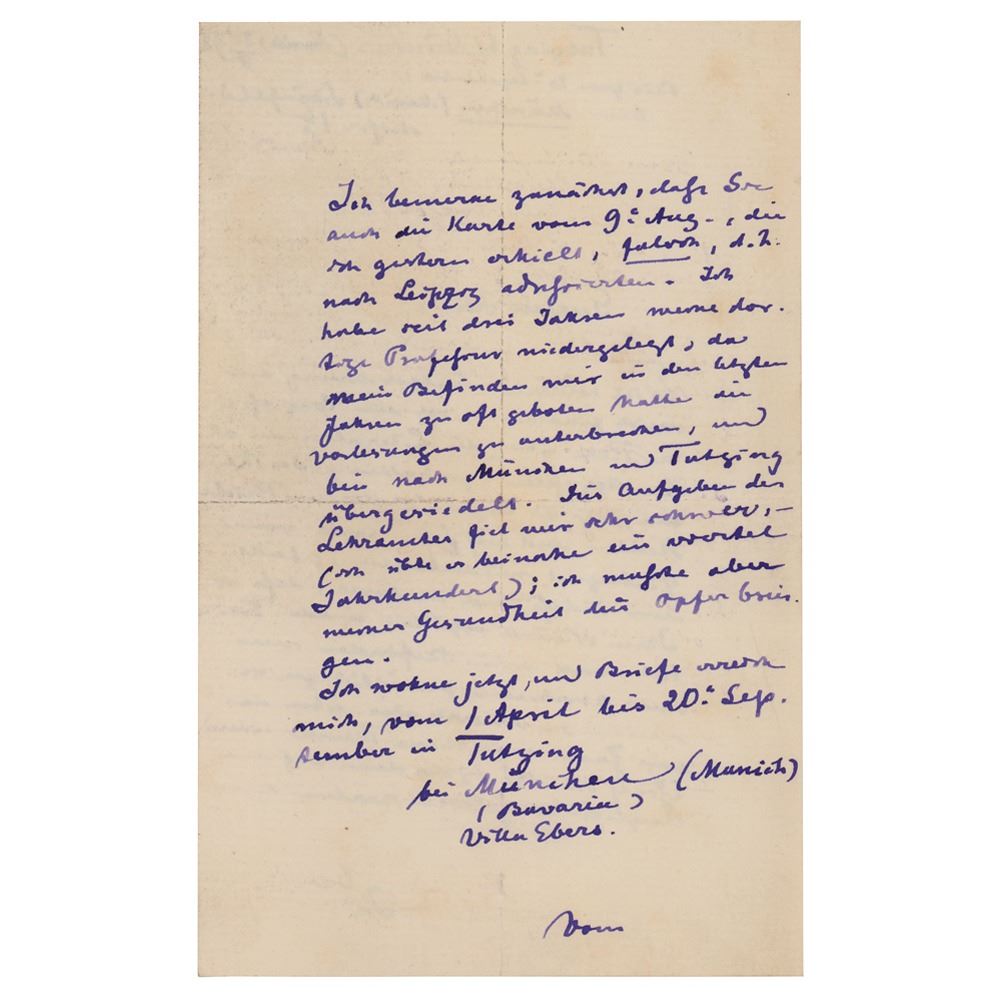 Ich bemerke zunächst, daſs Sie
auch die Karte vom 9t Aug., die
ich gestern erhielt, falsch, d.h.
nach Leipzig adressierten. Ich
habe seit drei Jahren meine dor-
tige Professur niedergelegt, da
mein Befinden mir in den letzten
Jahren zu oft geboten hatte die
Vorlesungen zu unterbrechen, und
bin nach München und Tutzing
übergesiedelt. Das Aufgeben des
Lehramtes fiel mir sehr schwer, –
(ich übte es beinahe ein viertel
Jahrhundert); ich muſste aber
meiner Gesundheit dies Opfer brin-
gen.
Ich wohne jetzt, und Briefe erreich
mich, vom 1 April bis 20t Sep-
tember in Tutzing
bei München (Munich)
(Bavaria)
Villa Ebers.
Vom